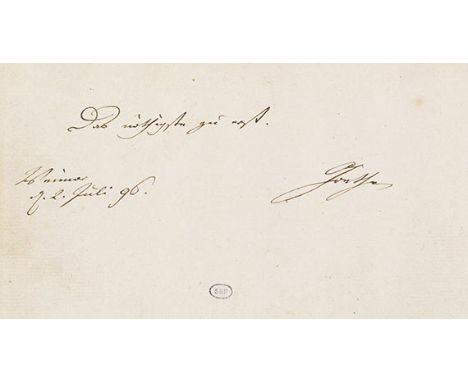 Das nöthigste zu erst.
Weimar
d. 2. Juli 96.
Goethe